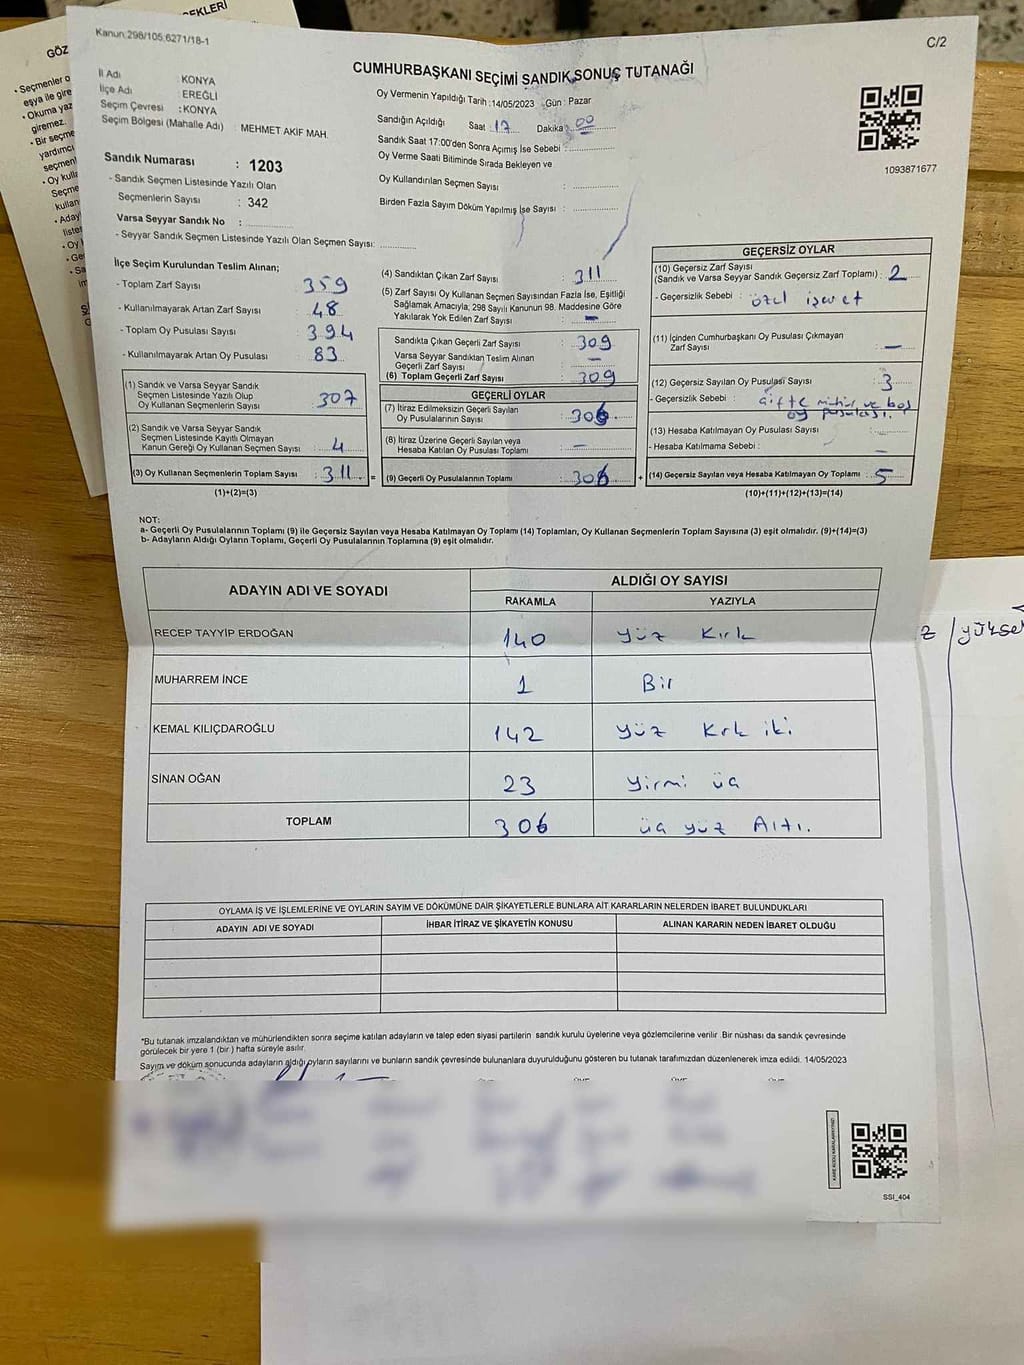 EKLERİ
GÖZ
• Seçmenler o
eşya ile gire
• Okuma yaz
giremez.
• Bir seçme
yardımcı
seçmen
• Oy kulla
Seçme
kullan
• Aday
liste
• Oy
• Ge
• Sa
Kanun:298/105.6271/18-1
C/2
CUMHURBAŞKANI SEÇİMİ SANDIK SONUÇ TUTANAĞI
İl Adı : KONYA
İlçe Adı : EREĞLİ
Seçim Çevresi : KONYA
Seçim Bölgesi (Mahalle Adı) : MEHMET AKİF MAH.
Sandık Numarası : 1203
- Sandık Seçmen Listesinde Yazılı Olan
Seçmenlerin Sayısı : 342
Varsa Seyyar Sandık No :
- Seyyar Sandık Seçmen Listesinde Yazılı Olan Seçmen Sayısı:
Oy Vermenin Yapıldığı Tarih :14/05/2023 Gün : Pazar
Sandığın Açıldığı Saat : 17 Dakika : 00
Sandık Saat 17:00'den Sonra Açımış İse Sebebi :
Oy Verme Saati Bitiminde Sırada Bekleyen ve
Oy Kullandırılan Seçmen Sayısı :
Birden Fazla Sayım Döküm Yapılmış İse Sayısı :
1093871677
İlçe Seçim Kurulundan Teslim Alınan;
- Toplam Zarf Sayısı : 359
- Kullanılmayarak Artan Zarf Sayısı : 48
- Toplam Oy Pusulası Sayısı : 394
- Kullanılmayarak Artan Oy Pusulası : 83
(1) Sandık ve Varsa Seyyar Sandık
Seçmen Listesinde Yazılı Olup
Oy Kullanan Seçmenlerin Sayısı : 307
(2) Sandık ve Varsa Seyyar Sandık
Seçmen Listesinde Kayıtlı Olmayan
Kanun Gereği Oy Kullanan Seçmen Sayısı : 4
(3) Oy Kullanan Seçmenlerin Toplam Sayısı : 311 =
(1)+(2)=(3)
(4) Sandıktan Çıkan Zarf Sayısı : 311
(5) Zarf Sayısı Oy Kullanan Seçmen Sayısından Fazla İse, Eşitliği
Sağlamak Amacıyla, 298 Sayılı Kanunun 98. Maddesine Göre
Yakılarak Yok Edilen Zarf Sayısı : -
Sandıkta Çıkan Geçerli Zarf Sayısı : 309
Varsa Seyyar Sandıktan Teslim Alınan
Geçerli Zarf Sayısı : -
(6) Toplam Geçerli Zarf Sayısı : 309
GEÇERLİ OYLAR
(7) İtiraz Edilmeksizin Geçerli Sayılan
Oy Pusulalarının Sayısı : 306
(8) İtiraz Üzerine Geçerli Sayılan veya
Hesaba Katılan Oy Pusulası Toplamı : -
(9) Geçerli Oy Pusulalarının Toplamı : 306 +
GEÇERSİZ OYLAR
(10) Geçersiz Zarf Sayısı
(Sandık ve Varsa Seyyar Sandık Geçersiz Zarf Toplamı) : 2
- Geçersizlik Sebebi : özel işaret
(11) İçinden Cumhurbaşkanı Oy Pusulası Çıkmayan
Zarf Sayısı : -
(12) Geçersiz Sayılan Oy Pusulası Sayısı : 3
- Geçersizlik Sebebi : çifte mühür ve boş
oy pusulası.
(13) Hesaba Katılmayan Oy Pusulası Sayısı :
- Hesaba Katılmama Sebebi : -
(14) Geçersiz Sayılan veya Hesaba Katılmayan Oy Toplamı : 5
(10)+(11)+(12)+(13)=(14)
NOT:
a- Geçerli Oy Pusulalarının Toplamı (9) ile Geçersiz Sayılan veya Hesaba Katılmayan Oy Toplamı (14) Toplamları, Oy Kullanan Seçmenlerin Toplam Sayısına (3) eşit olmalıdır. (9)+(14)=(3)
b- Adayların Aldığı Oyların Toplamı, Geçerli Oy Pusulalarının Toplamına (9) eşit olmalıdır.
ADAYIN ADI VE SOYADI ALDIĞI OY SAYISI
RAKAMLA YAZIYLA
RECEP TAYYİP ERDOĞAN 140 yüz Kırk
MUHARREM İNCE 1 Bir
KEMAL KILIÇDAROĞLU 142 yüz Kırk iki
SİNAN OĞAN 23 yirmi üç
TOPLAM 306 üç yüz Altı.
z / yüksek
OYLAMA İŞ VE İŞLEMLERİNE VE OYLARIN SAYIM VE DÖKÜMÜNE DAİR ŞİKAYETLERLE BUNLARA AİT KARARLARIN NELERDEN İBARET BULUNDUKLARI
ADAYIN ADI VE SOYADI İHBAR İTİRAZ VE ŞİKAYETİN KONUSU ALINAN KARARIN NEDEN İBARET OLDUĞU
*Bu tutanak imzalandıktan ve mühürlendikten sonra seçime katılan adayların ve talep eden siyasi partilerin sandık kurulu üyelerine veya gözlemcilerine verilir .Bir nüshası da sandık çevresinde
görülecek bir yere 1 (bir ) hafta süreyle asılır.
Sayım ve döküm sonucunda adayların aldığı oyların sayılarını ve bunların sandık çevresinde bulunanlara duyurulduğunu gösteren bu tutanak tarafımızdan düzenlenerek imza edildi. 14/05/2023
SSI_404